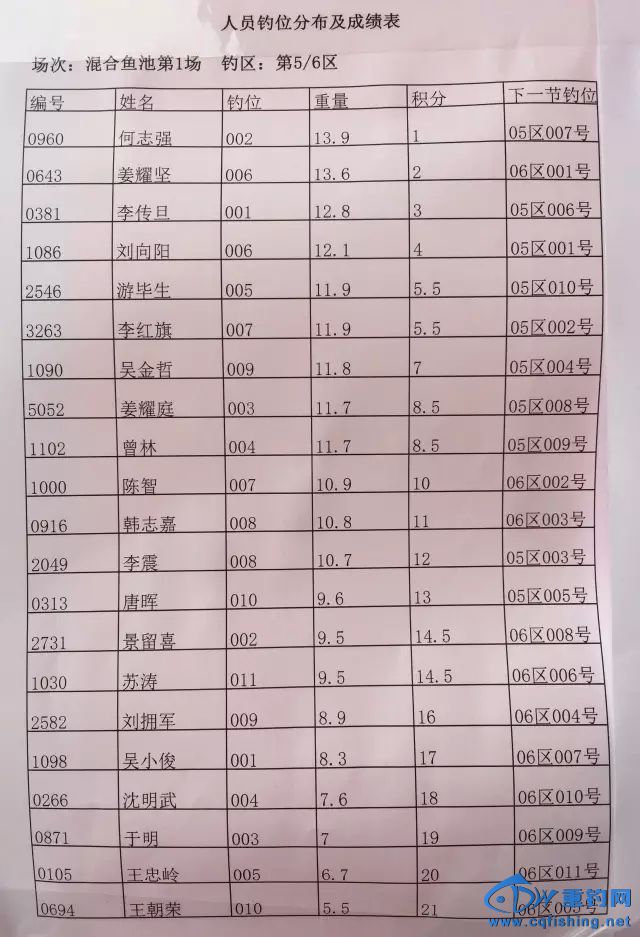 人员钓位分布及成绩表
场次：混合鱼池第1场 钓区：第5/6区
编号 姓名 钓位 重量 积分 下一节钓位
0960 何志强 002 13.9 1 05区007号
0643 姜耀坚 006 13.6 2 06区001号
0381 李传旦 001 12.8 3 05区006号
1086 刘向阳 006 12.1 4 05区001号
2546 游毕生 005 11.9 5.5 05区010号
3263 李红旗 007 11.9 5.5 05区002号
1090 吴金哲 009 11.8 7 05区004号
5052 姜耀庭 003 11.7 8.5 05区008号
1102 曾林 004 11.7 8.5 05区009号
1000 陈智 007 10.9 10 06区002号
0916 韩志嘉 008 10.8 11 06区003号
2049 李震 008 10.7 12 05区003号
0313 唐晖 010 9.6 13 05区005号
2731 景留喜 002 9.5 14.5 06区008号
1030 苏涛 011 9.5 14.5 06区006号
2582 刘拥军 009 8.9 16 06区004号
1098 吴小俊 001 8.3 17 06区007号
0266 沈明武 004 7.6 18 06区010号
0871 于明 003 7 19 06区009号
0105 王忠岭 005 6.7 20 06区011号
0694 王朝荣 010 5.5 21 06区005号
重钓网
www.cqfishing.net